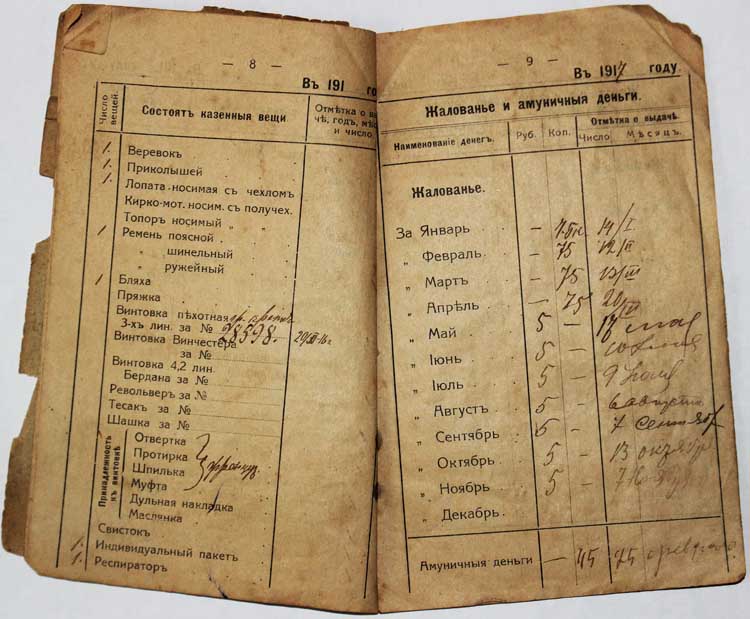 — 8 —
Въ 191 го
Число вещей.
Состоятъ казенныя вещи
Отмѣтка о вы
чѣ, годъ, мѣс
и число.
1. Веревокъ
1. Приколышей
1. Лопата носимая съ чехломъ
Кирко-мот. носим. съ получех.
Топоръ носимый „ „
1 Ремень поясной
„ шинельный
„ ружейный
1 Бляха
Пряжка
Винтовка пѣхотная
3-хъ лин. за № 28598. 20/XII-16 г
Винтовка Винчестера
за №
Винтовка 4,2 лин.
Бердана за №
Револьверъ за №
Тесакъ за №
Шашка за №
Принадлежность
къ винтовкѣ
Отвертка
Протирка
Шпилька француз
Муфта
Дульная накладка
Маслянка
Свистокъ
1. Индивидуальный пакетъ
1. Респираторъ
— 9 —
Въ 1917 году.
Жалованье и амуничныя деньги.
Наименованіе денегъ. Руб. Коп. Отмѣтка о выдачѣ.
Число Мѣсяцъ.
Жалованье.
За Январь — 14/I
„ Февраль — 75 12/II
„ Мартъ — 75 13/III
„ Апрѣль — 75 20/III
„ Май 5 — 17 мая
„ Іюнь 5 — 10 июня
„ Іюль 5 — 9 июля
„ Августъ 5 — 6 августа
„ Сентябрь 5 — 7 сентябр
„ Октябрь 5 — 13 октябр
„ Ноябрь 5 — 7
„ Декабрь
Амуничныя деньги — 45 25 февраля